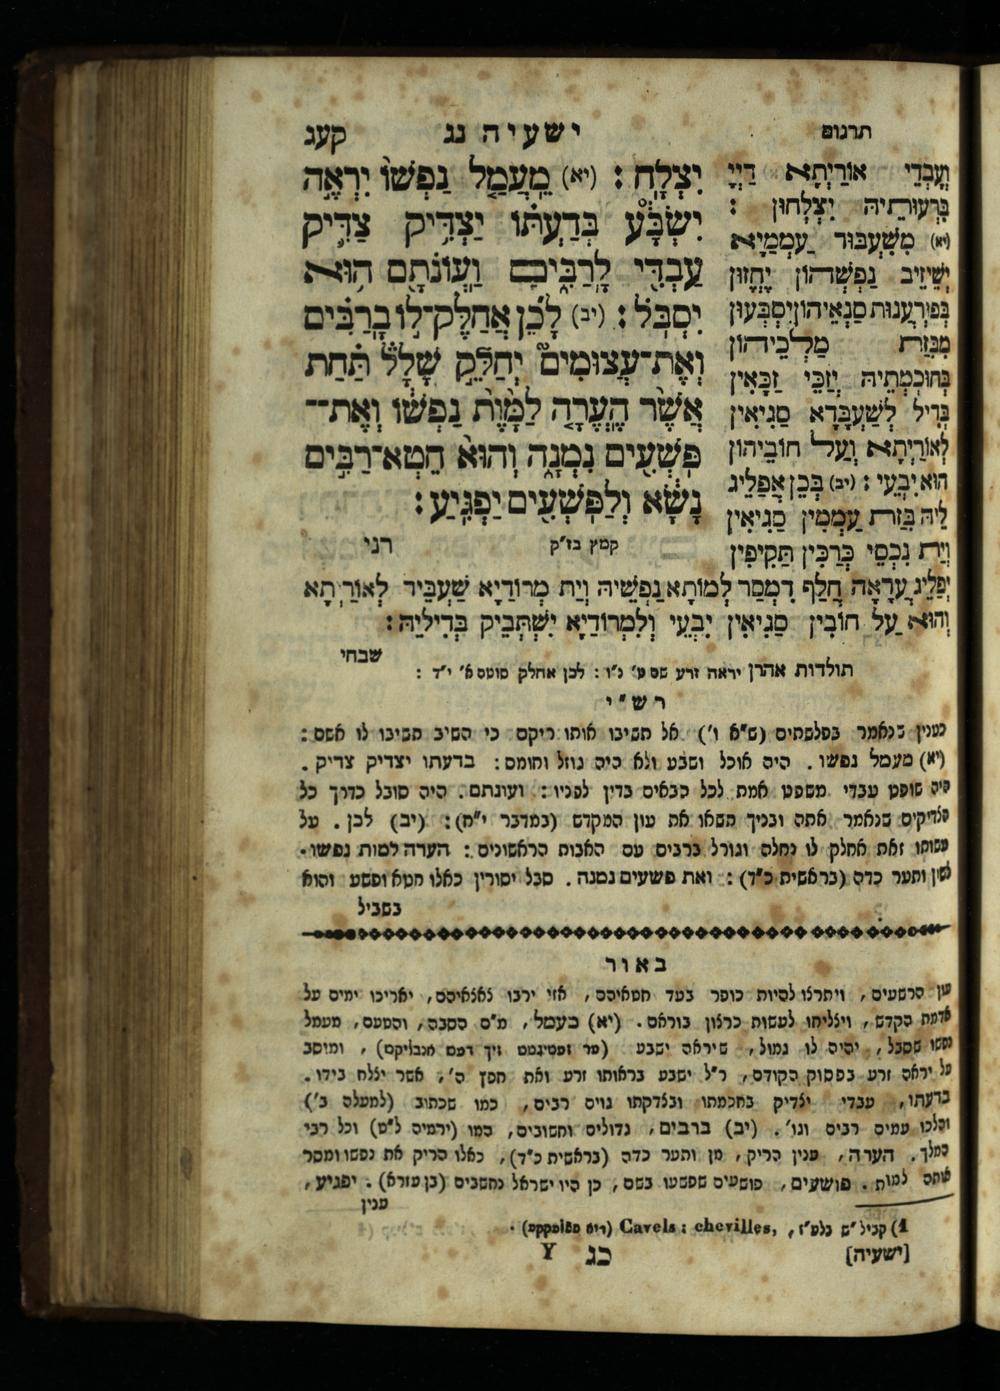 תרגום ישעיה נג קעג
יִצְלָֽח׃ (יא) מֵעֲמַ֤ל נַפְשׁוֹ֙ יִרְאֶ֣ה
יִשְׂבָּ֔ע בְּדַעְתּ֗וֹ יַצְדִּ֥יק צַדִּ֛יק
עַבְדִּ֖י לָֽרַבִּ֑ים וַעֲוֺנֹתָ֖ם ה֥וּא
יִסְבֹּֽל׃ (יב) לָכֵ֞ן אֲחַלֶּק־ל֣וֹ בָרַבִּ֗ים
וְאֶת־עֲצוּמִים֮ יְחַלֵּ֣ק שָׁלָל֒ תַּ֗חַת
אֲשֶׁ֨ר הֶעֱרָ֤ה לַמָּ֙וֶת֙ נַפְשׁ֔וֹ וְאֶת־
פֹּשְׁעִ֖ים נִמְנָ֑ה וְהוּא֙ חֵטְא־רַבִּ֣ים
נָשָׂ֔א וְלַפֹּשְׁעִ֖ים יַפְגִּֽיעַ׃
קמץ בז"ק רני
וְעָבְדֵי אוֹרַיְתָא דַייָ
בִּרְעוּתֵיהּ יִצְלְחוּן :
(יא) מִשִׁעְבּוּד עַמְמַיָא
יְשֵׁיזֵיב נַפְשְׁהוֹן יֶחֱזוּן
בְּפוּרְעָנוּת סַנְאֵיהוֹן יִסְבְּעוּן
מִבִּזַת מַלְכֵיהוֹן
בְּחוּכְמְתֵיהּ יְזַכֵּי זַכָּאִין
בְּדִיל לְשַׁעְבָּדָא סַגִיאִין
לְאוֹרַיְתָא וְעַל חוֹבֵיהוֹן
הוּא יִבְעֵי : (יב) בְּכֵן אֲפַלֵיג
לֵיהּ בִּזַת עַמְמִין סַגִיאִין
וְיַת נִכְסֵי כְּרַכִּין תַּקִיפִין
יְפַלֵיג עֲדָאָה חֲלַף דִמְסַר לְמוֹתָא נַפְשֵׁיהּ וְיַת מְרוֹדַיָא שַׁעְבֵּיד לְאוֹרַיְתָא
וְהוּא עַל חוֹבִין סַגִיאִין יִבְעֵי וְלִמְרוֹדַיָא יִשְׁתְּבֵיק בְּדִילֵיהּ :
שבחי
תולדות אהרן יראה זרע שם ע' נ"ו : לכן אחלק סוטה א' י"ד :
רש"י
כענין שנאמר בפלשתים (ש"א ו') אל תשיבו אותו ריקם כי השיב תשיבו לו אשם :
(יא) מעמל נפשו . היה אוכל ושבע ולא היה גוזל וחומס : בדעתו יצדיק צדיק .
היה שופט עבדי משפט אמת לכל הבאים בדין לפניו : ועונתם . היה סובל כדרך כל
הצדיקים שנאמר אתה ובניך תשאו את עון המקדש (במדבר י"ח) : (יב) לכן . על
עשותו זאת אחלק לו נחלה וגורל ברבים עם האבות הראשונים : הערה למות נפשו .
לשון ותער כדה (בראשית כ"ד) : ואת פשעים נמנה . סבל יסורין כאלו חטא ופשע והוא
בשביל
באור
עון הרשעים , ויתרצו להיות כופר בעד חטאיהם , אזי ירבו צאצאיהם , יאריכו ימים על
אדמת הקדש , ויצליחו לעשות כרצון בוראם . (יא) בעמל , מ"ם הסבה , והטעם , מעמל
נפשו שסבל , יהיה לו גמול , שיראה ישבע , ומוסב
על יראה זרע בפסוק הקודם , ר"ל ישבע בראותו זרע ואת חפץ ה' , אשר יצלח בידו .
בדעתו , עבדי יצדיק בחכמתו ובצדקתו גוים רבים , כמו שכתוב (למעלה ב')
והלכו עמים רבים וגו' . (יב) ברבים , גדולים וחשובים , כמו (ירמיה ל"ט) וכל רבי
המלך . הערה , ענין הריק , מן ותער כדה (בראשית כ"ד) , כאלו הריק את נפשו ומסר
אותה למות . פושעים , פושעים שפשעו בשם , כן היו ישראל נחשבים (בן עזרא) . יפגיע ,
ענין
1) Cavels : chevilles,
[ישעיה] כג Y